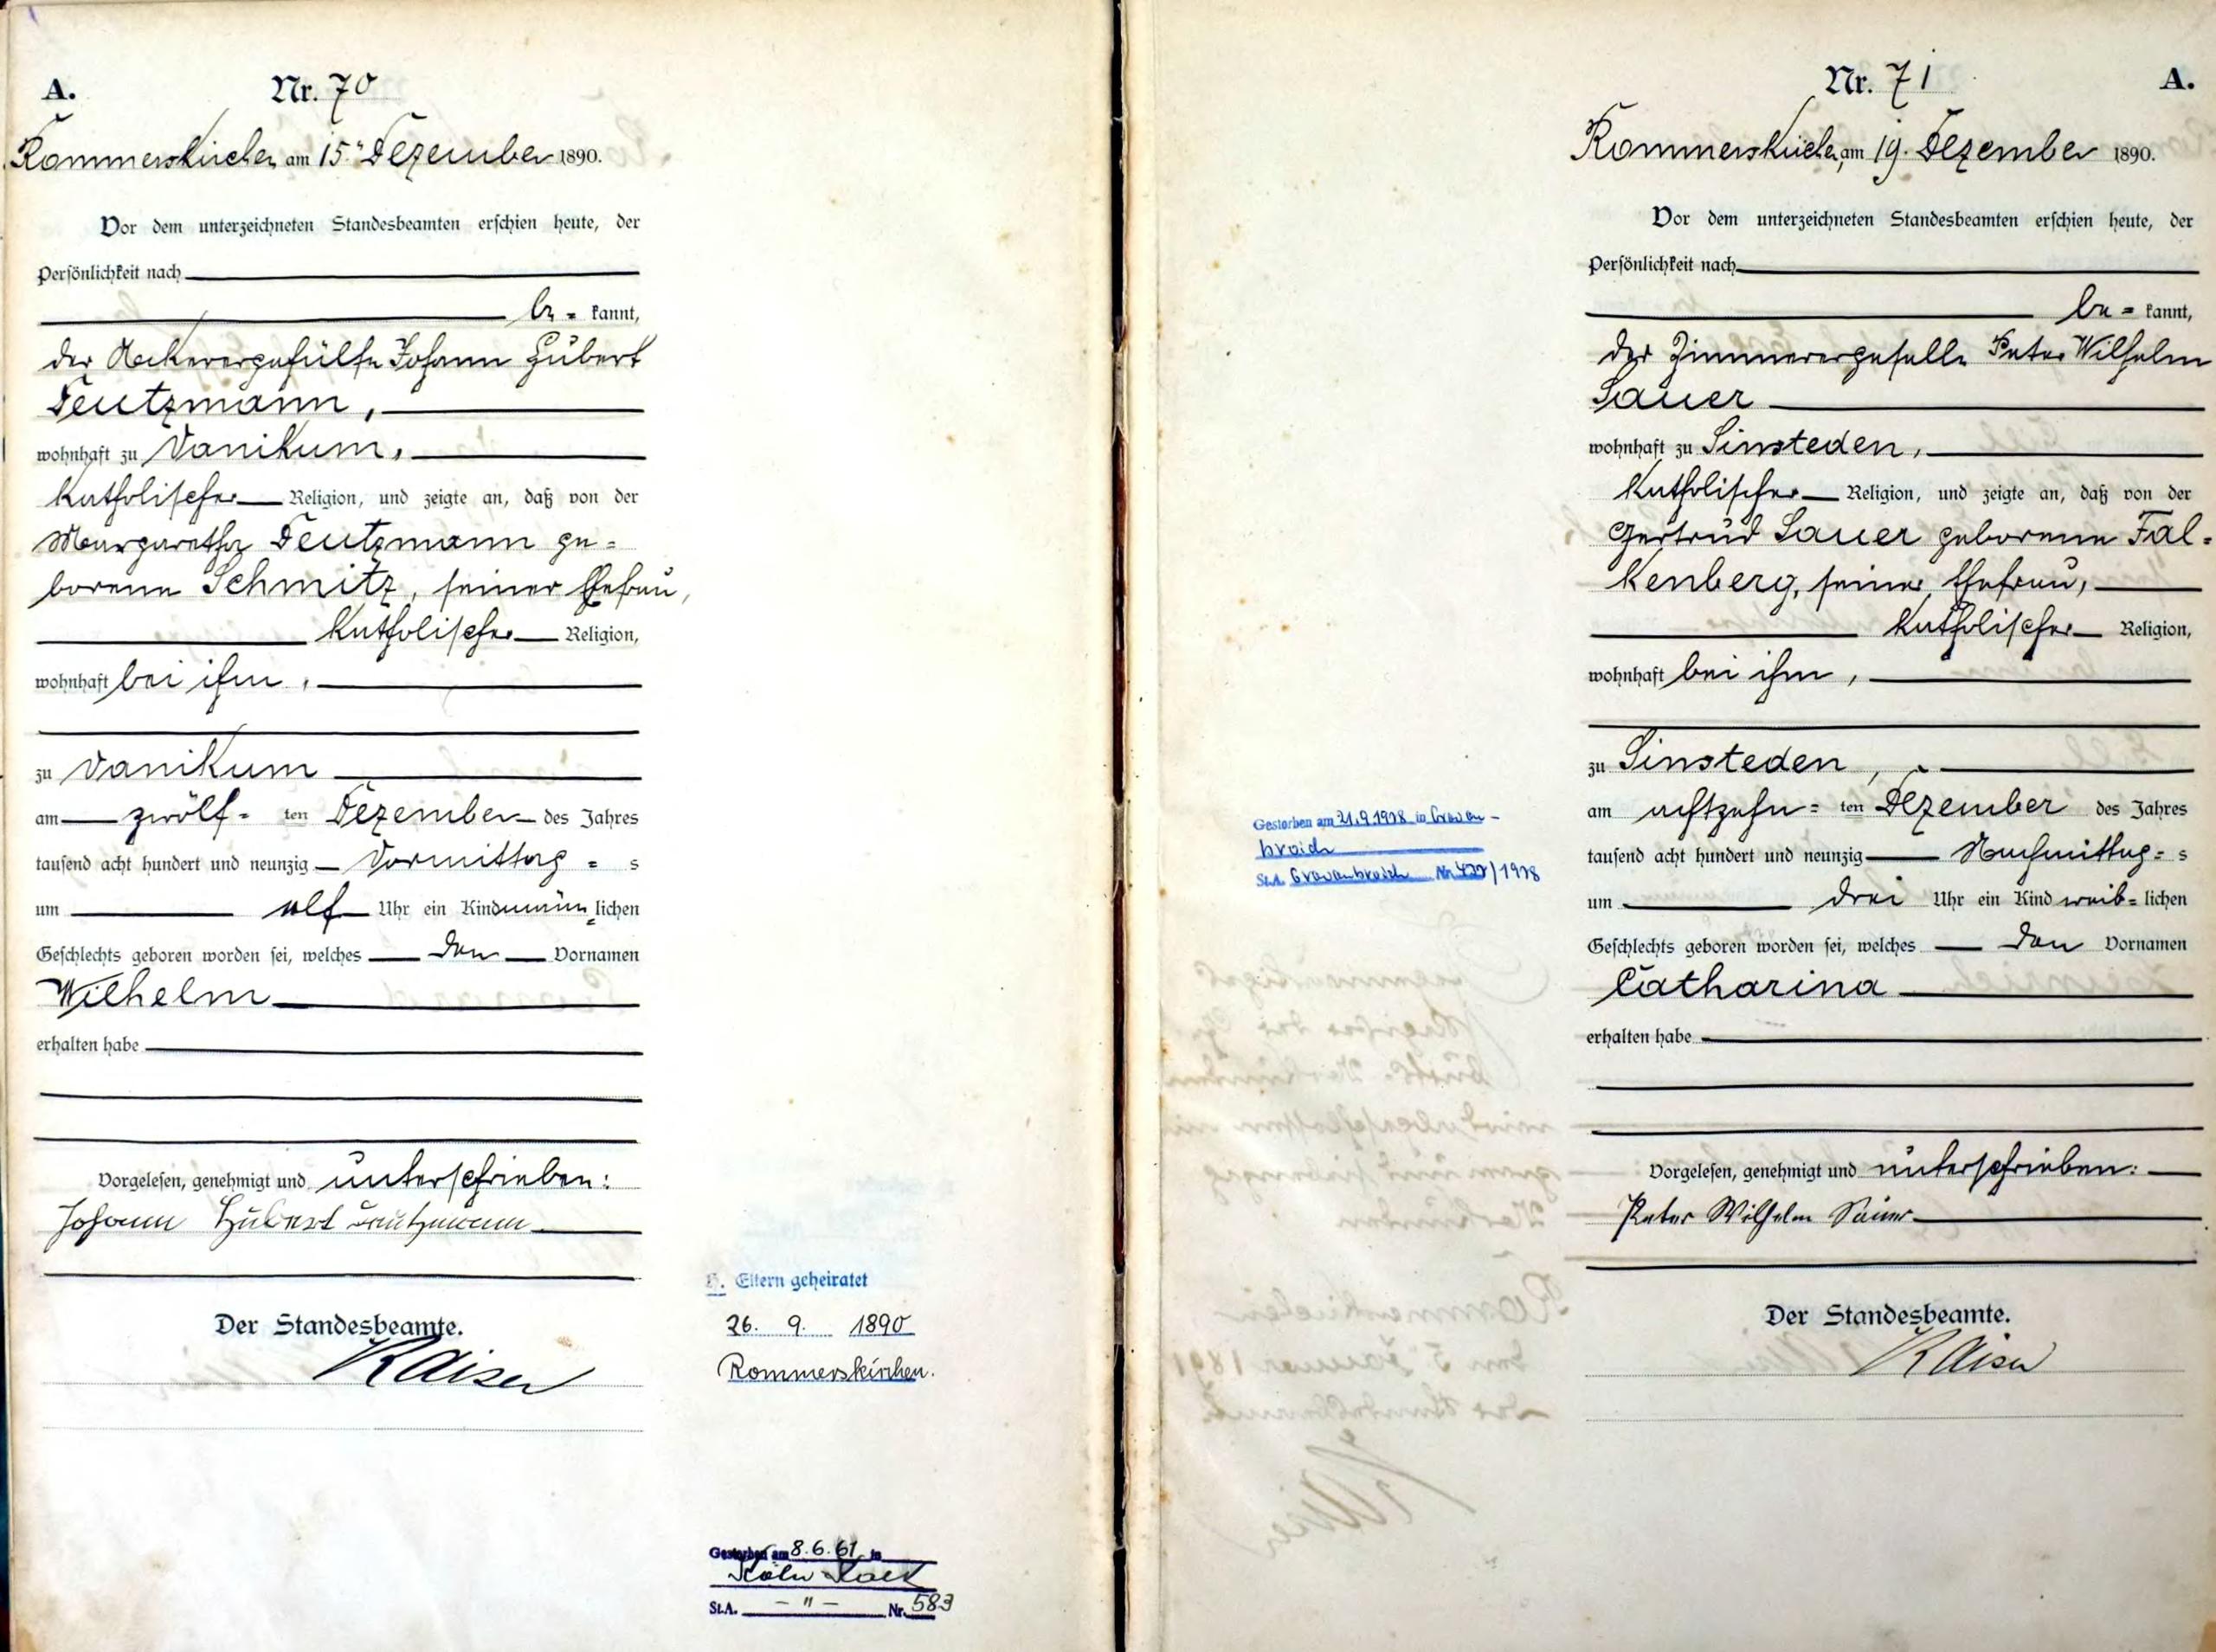 A. Nr. 70
Rommerskirchen am 15. Dezember 1890.
Vor dem unterzeichneten Standesbeamten erschien heute, der
Persönlichkeit nach
be = kannt,
der Ackerergehülfe Johann Hubert
Feutzmann,
wohnhaft zu Vanikum,
katholischer Religion, und zeigte an, daß von der
Margaretha Feutzmann ge=
borene Schmitz, seiner Ehefrau,
katholischer Religion,
wohnhaft bei ihm,
zu Vanikum
am zwölf= ten Dezember des Jahres
tausend acht hundert und neunzig Vormittag = s
um elf Uhr ein Kind männ=lichen
Geschlechts geboren worden sei, welches den Vornamen
Wilhelm
erhalten habe
Vorgelesen, genehmigt und unterschrieben:
Johann Hubert Feutzmann
Der Standesbeamte.
Kaiser
Eltern geheiratet
26. 9. 1890
Rommerskirchen.
Gestorben am 8.6.61 in
Köln
St.A. — " — Nr. 583
Nr. 71 A.
Rommerskirchen, am 19. Dezember 1890.
Vor dem unterzeichneten Standesbeamten erschien heute, der
Persönlichkeit nach
be = kannt,
der Zimmerergeselle Peter Wilhelm
Sauer
wohnhaft zu Sinsteden,
katholischer Religion, und zeigte an, daß von der
Gertrud Sauer geborene Fal=
kenberg, seiner Ehefrau,
katholischer Religion,
wohnhaft bei ihm,
zu Sinsteden,
am achtzehn= ten Dezember des Jahres
tausend acht hundert und neunzig Nachmittag= s
um drei Uhr ein Kind weib= lichen
Geschlechts geboren worden sei, welches den Vornamen
Catharina
erhalten habe
Vorgelesen, genehmigt und unterschrieben:
Peter Wilhelm Sauer
Der Standesbeamte.
Kaiser
Gestorben am 21.9.1978 in Greven-
broich
St.A. Grevenbroich Nr. /1978